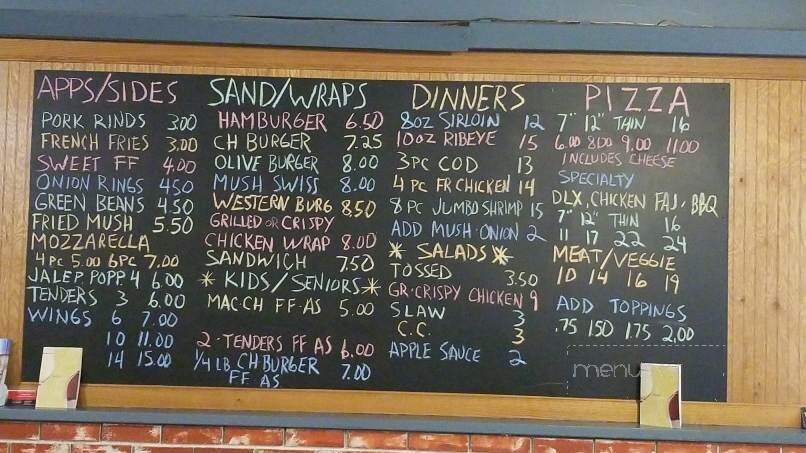 APPS/SIDES
PORK RINDS 3.00
FRENCH FRIES 3.00
SWEET FF 4.00
ONION RINGS 4.50
GREEN BEANS 4.50
FRIED MUSH 5.50
MOZZARELLA
4 PC 5.00 6 PC 7.00
JALEP. POPP. 4 6.00
TENDERS 3 6.00
WINGS 6 7.00
10 11.00
14 15.00
SAND/WRAPS
HAMBURGER 6.50
CH BURGER 7.25
OLIVE BURGER 8.00
MUSH SWISS 8.00
WESTERN BURG 8.50
GRILLED OR CRISPY
CHICKEN WRAP 8.00
SANDWICH 7.50
* KIDS/SENIORS *
MAC-CH FF-AS 5.00
2-TENDERS FF AS 6.00
1/4 LB CH BURGER 7.00
FF AS
DINNERS
8oz SIRLOIN 12
10oz RIBEYE 15
3 PC COD 13
4 PC FR CHICKEN 14
8 PC JUMBO SHRIMP 15
ADD MUSH-ONION 2
* SALADS *
TOSSED 3.50
GR-CRISPY CHICKEN 9
SLAW 3
C.C. 3
APPLE SAUCE 2
PIZZA
7" 12" THIN 16
6.00 8.00 9.00 11.00
INCLUDES CHEESE
SPECIALTY
DLX, CHICKEN FAJ. BBQ
7" 12" THIN 16
11 17 22 24
MEAT/VEGGIE
10 14 16 19
ADD TOPPINGS
.75 1.50 1.75 2.00
menu